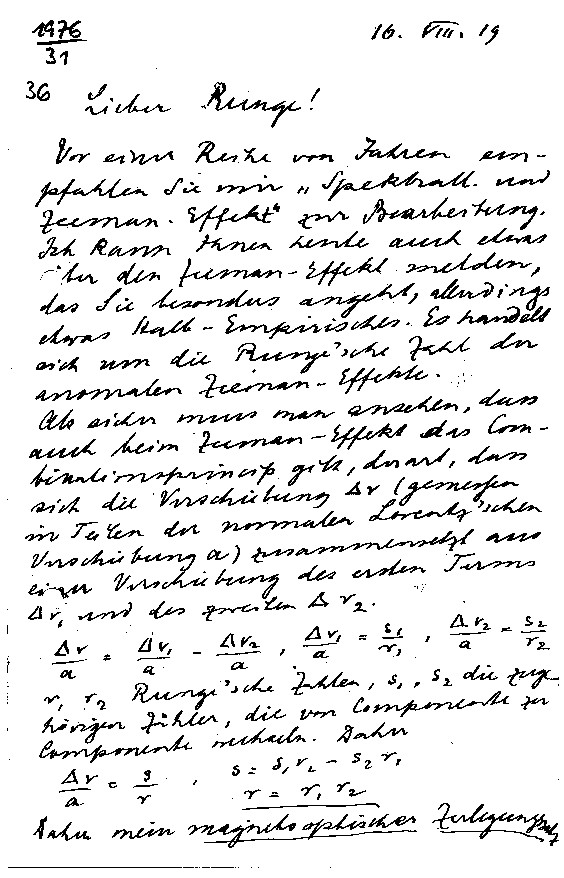 1976
31
16. VIII. 19
36 Lieber Runge!
Vor einer Reihe von Jahren em-
pfahlen Sie mir „Spektrall. und
Zeeman-Effekt“ zur Bearbeitung.
Ich kann Ihnen heute auch etwas
über den Zeeman-Effekt melden,
das Sie besonders angeht, allerdings
etwas Halb-Empirisches. Es handelt
sich um die Runge'sche Zahl der
anomalen Zeeman-Effekte.
Als sicher muss man ansehen, dass
auch beim Zeeman-Effekt das Com-
binationsprincip gilt, derart, dass
sich die Verschiebung Δν (gemessen
in Teilen der normalen Lorentz'schen
Verschiebung a) zusammensetzt aus
einer Verschiebung des ersten Terms
Δν₁ und des zweiten Δν₂.
Δν/a = Δν₁/a − Δν₂/a , Δν₁/a = s₁/r₁ , Δν₂/a = s₂/r₂
r₁ r₂ Runge'sche Zahlen, s₁, s₂ die zuge
hörigen Zähler, die von Componente zu
Componente wechseln. Daher
Δν/a = s/r , s = s₁r₂ − s₂r₁
r = r₁ r₂
Daher mein magnetooptischer Zerlegungssatz